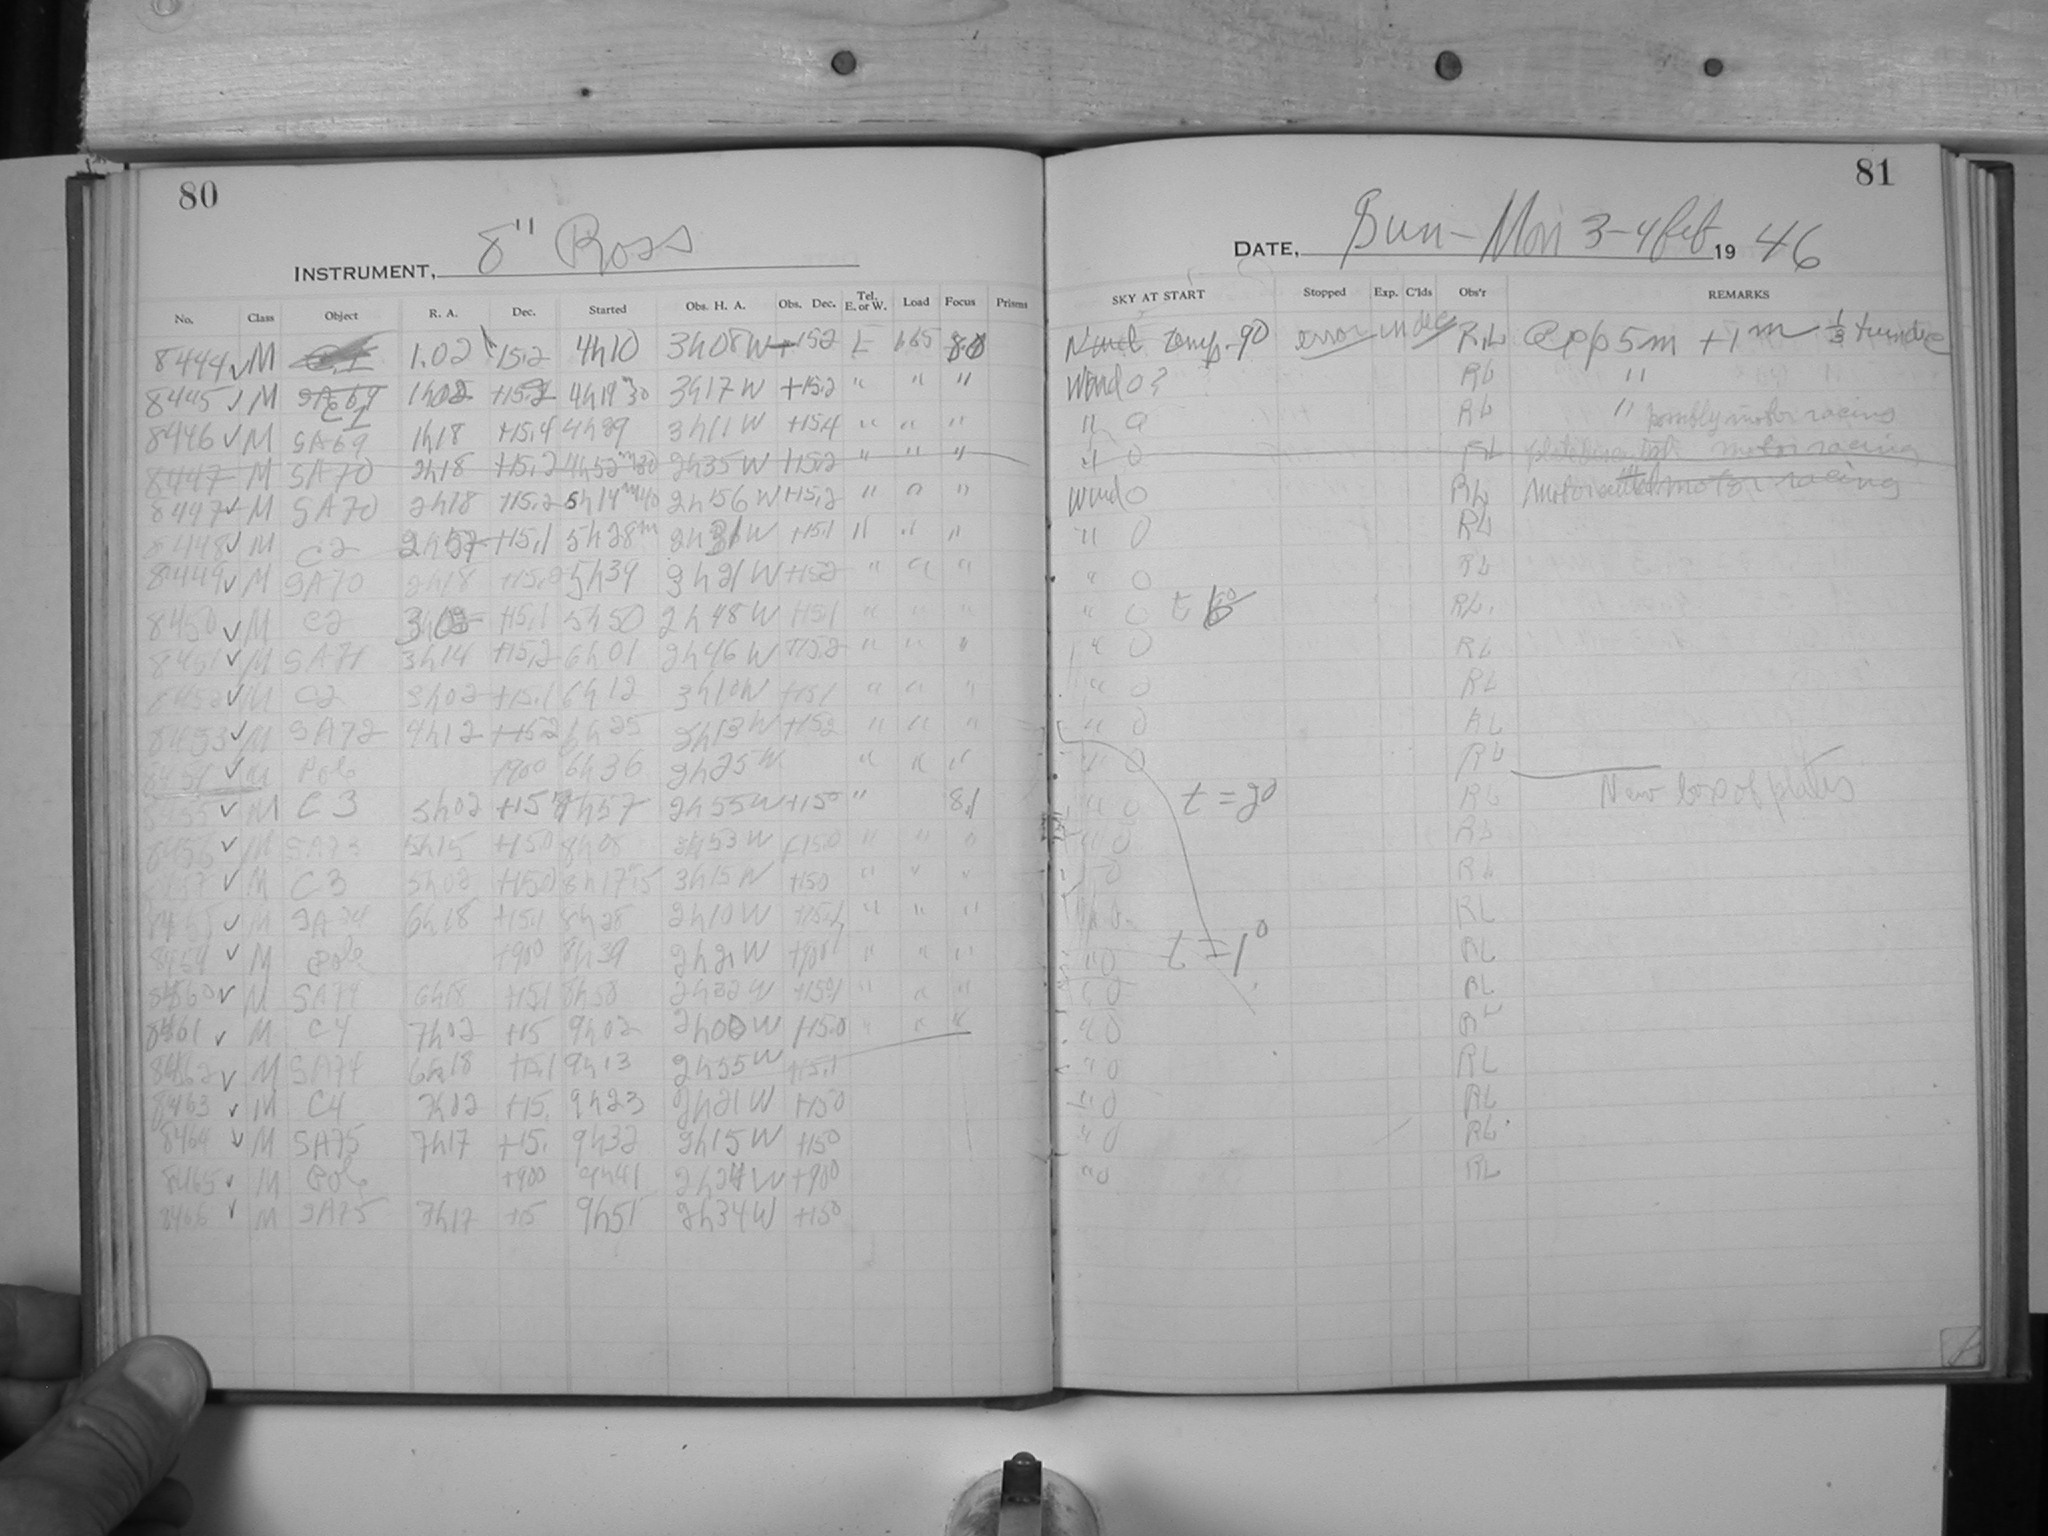 80
INSTRUMENT, 8" Ross
No. Class Object R. A. Dec. Started Obs. H. A. Obs. Dec. Tel. E. or W. Load Focus Prisms
8444 ✓ M 1.02 15.2 4h10 3h08W +152 E 165 8.0
8445 ✓ M C1 1h02 +15.2 4h19 30 3h17W +15.2 " " "
8446 ✓ M SA69 1h18 +15.4 4h29 3h11W +15.4 " " "
8447 M SA70 2h18 +15.2 4h52m30 2h35W +15.2 " " "
8447 ✓ M SA70 2h18 +15.2 5h14m40 2h56W +15.2 " " "
8448 ✓ M C2 +15.1 5h28m W +15.1 " " "
8449 ✓ M SA70 2h18 +15.2 5h39 3h21W +152 " " "
8450 ✓ M C2 3h02 +15.1 5h50 2h48W +15.1 " " "
8451 ✓ M SA71 3h14 +15.2 6h01 2h46W +15.2 " " "
8452 ✓ M C2 3h02 +15.1 6h12 3h10W +15.1 " " "
8453 ✓ M SA72 4h12 +152 6h25 2h13W +152 " " "
8454 ✓ M Pole +900 6h36 2h25W " " "
8455 ✓ M C3 5h02 +15 7h57 2h55W +150 " 8.1
8456 ✓ M SA73 5h15 +150 8h08 2h53W +150 " " "
8457 ✓ M C3 5h02 +150 8h17 3h15W +150 " " "
✓ M SA74 6h18 +15.1 8h28 2h10W +15.1 " " "
8459 ✓ M Pole +900 8h39 2h21W +900 " " "
8460 ✓ M SA74 6h18 +15.1 2h32W +15.1 " " "
8461 ✓ M C4 7h02 +15 9h02 2h00W +15.0 " " "
8462 ✓ M SA74 6h18 +15.1 9h13 2h55W +15.1
8463 ✓ M C4 7h02 +15. 9h23 2h21W +150
8464 ✓ M SA75 7h17 +15. 9h32 2h15W +150
8465 ✓ M Pole +900 9h41 2h24W +900
8466 ✓ M SA75 7h17 +15 9h51 2h34W +150
81
DATE, Sun - Mon 3-4 Feb 19 46
SKY AT START Stopped Exp. C'lds Obs'r REMARKS
Temp. 90 error in dec RL app 5m + 1m 1/3 turn dec
Wind 0? RL "
" 0 RL " possibly motor racing
" 0 RL motor racing
Wind 0 RL motor racing
" 0 RL
" 0 RL
" 0 RL.
" 0 RL
" 0 RL
" 0 RL
" 0 RL
" 0 t = 20 RL New box of plates
" 0 RL
" 0 RL
" 0 RL
" 0 t = 1° RL
" 0 RL
" 0 RL
" 0 RL
" 0 RL
" 0 RL.
" 0 RL